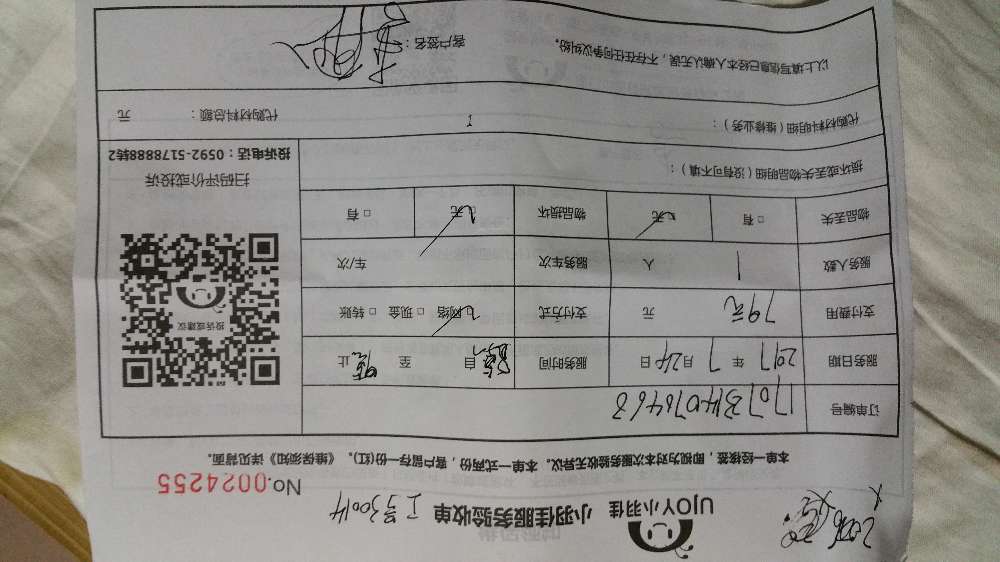 UJOY小羽佳 小羽佳服务验收单 工号30014
No.0024255
本单一经接签，即视为对本次服务验收无异议。本单一式两份，客户留存一份(红)。《维保须知》详见背面。
订单编号
服务日期 2017 年 7 月 24 日 服务时间 自 至 止
支付费用 79元 元 支付方式 □ 网络 □ 现金 □ 转账
服务人数 1 人 服务车次 车/次
物品丢失 □ 有 □ 无 物品损坏 □ 无 □ 有
投诉或建议
扫码评价或投诉
投诉电话：0592-5178888转2
损坏或丢失物品明细（没有可不填）：
代购材料明细（维修业务）： 1 代购材料总额： 元
以上填写信息已经本人确认无误，不存在任何争议纠纷。 客户签名：